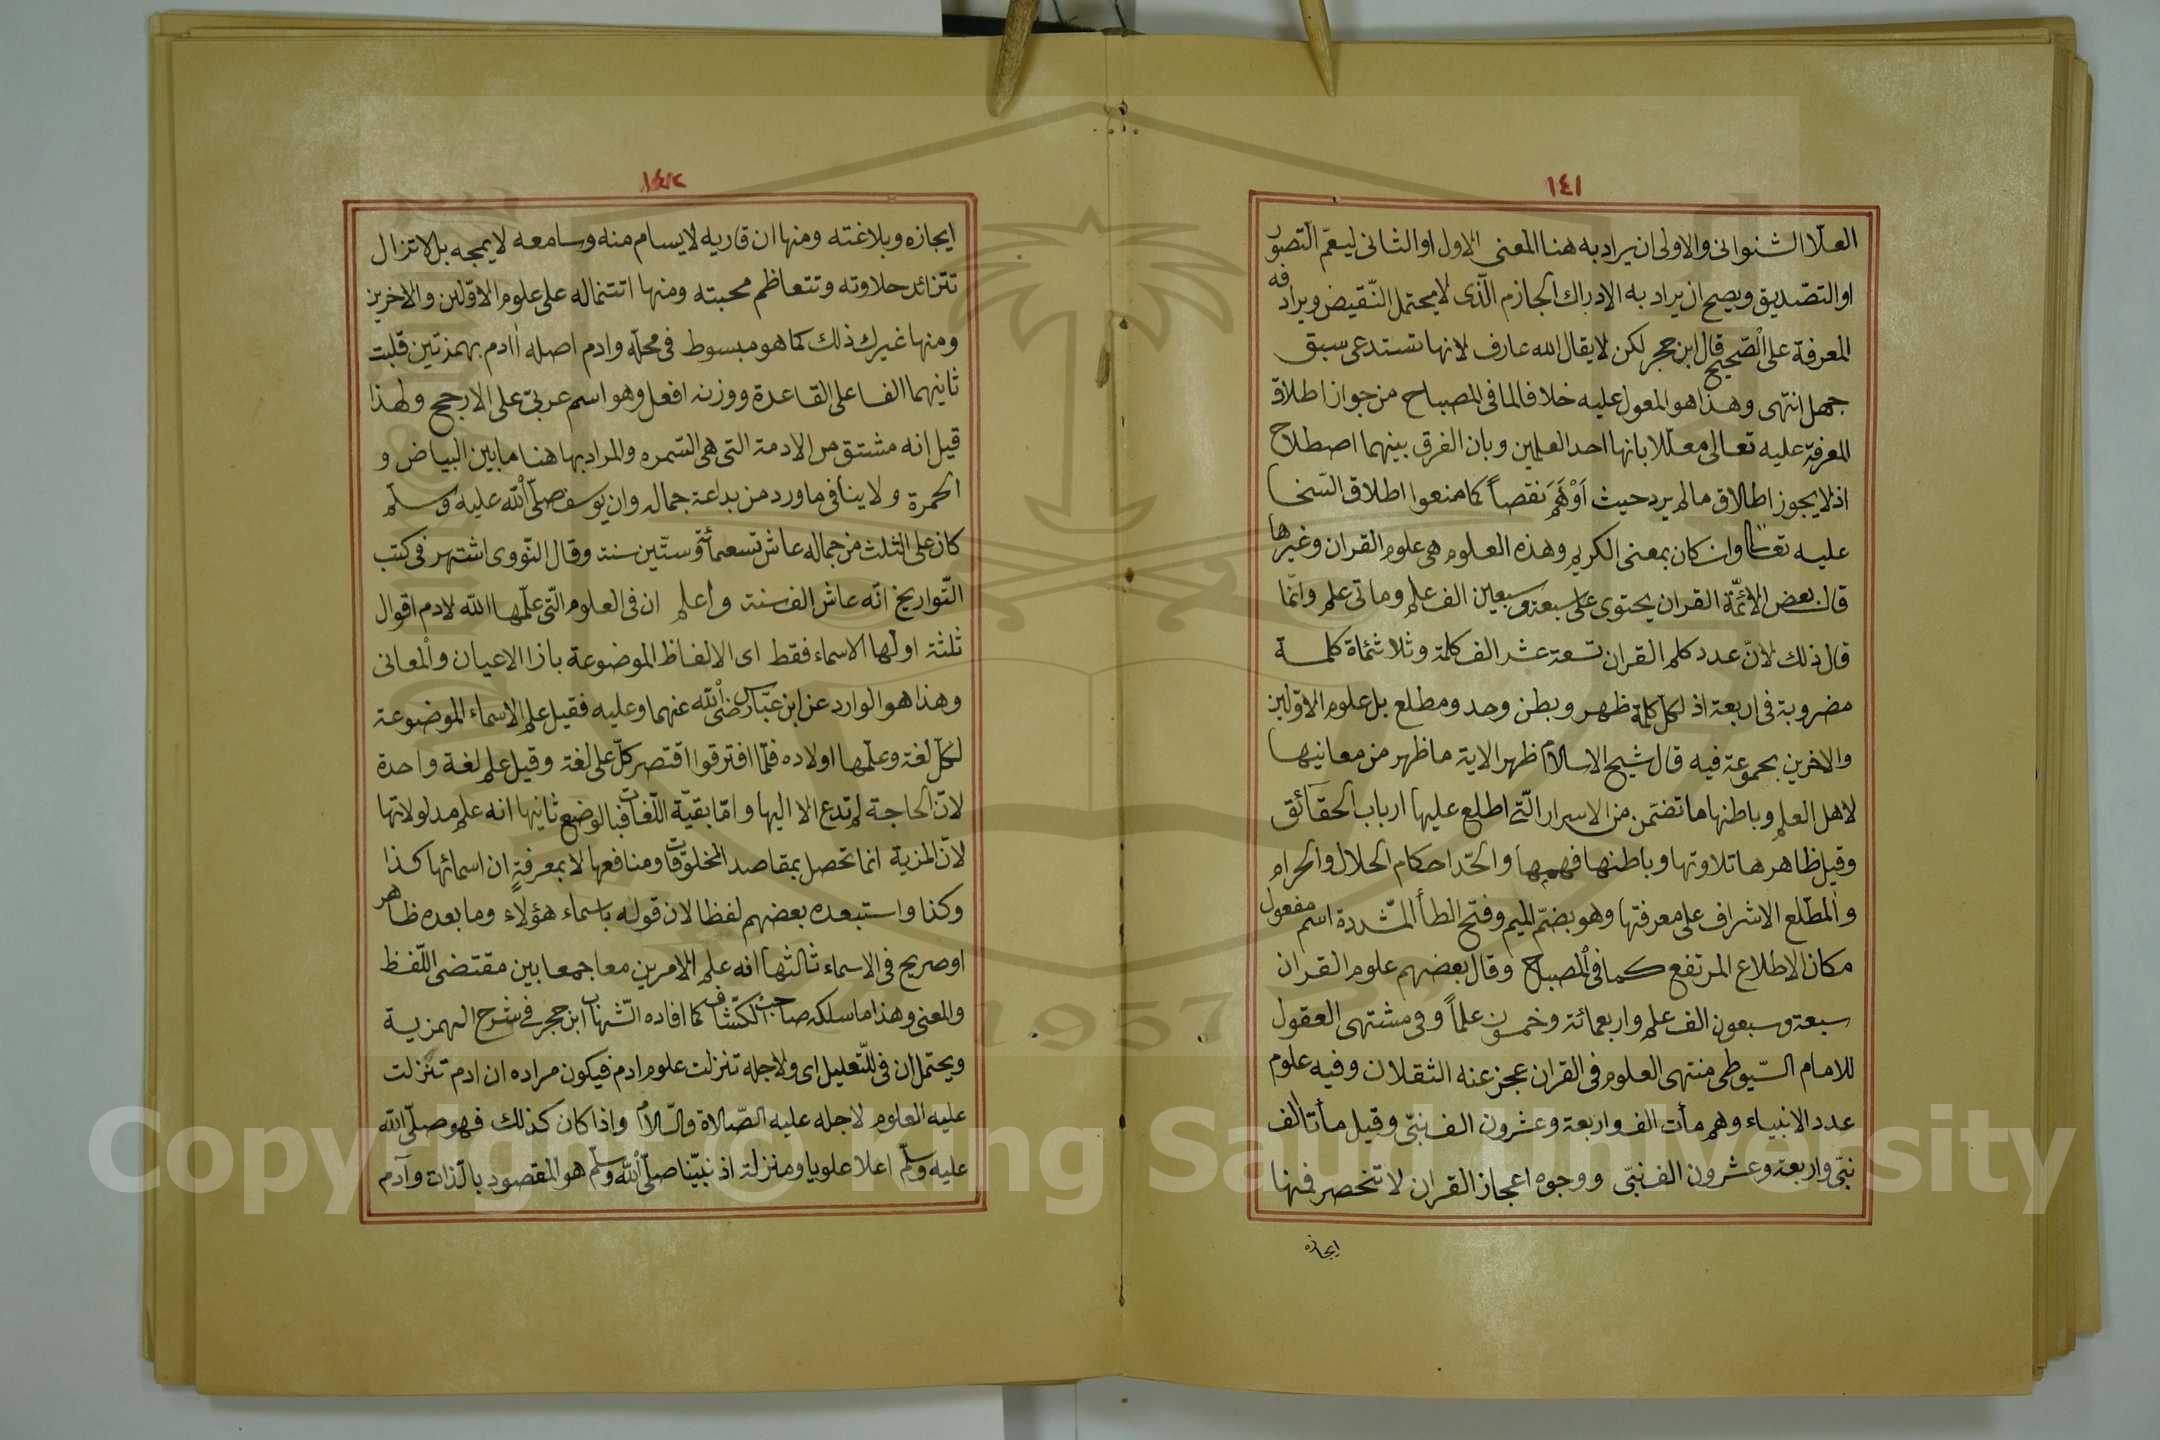 ١٤١
العلا الشنوانى والاولى ان يراد به هنا المعنى الاول او الثانى ليعمّ التصور
او التصديق ويصح ان يراد به الادراك الجازم الّذى لا يحتمل النّقيض ويرادفه
المعرفة على الصّحيح قال ابن حجر لكن لا يقال الله عارف لانها تستدعى سبق
جهل انتهى وهذا هو المعول عليه خلافا لما فى المصباح من جواز اطلاق
المعرفة عليه تعالى معلّلا بانها احد العلمين وبان الفرق بينهما اصطلاح
اذ لا يجوز اطلاق ما لم يرد حيث اَوْهَمَ نقصاً كما منعوا اطلاق السّخا
عليه تعالى وان كان بمعنى الكريم وهذه العلوم هى علوم القران وغيرها
قال بعض الائمّة القران يحتوى على سبعة وسبعين الف علم وماتى علم وانّما
قال ذلك لانّ عدد كلم القران تسعة عشر الف كلمة وثلاثمأة كلمة
مضروبة فى اربعة اذ لكل كلمة ظهر وبطن وحد ومطلع بل علوم الاوّلين
والاخرين مجموعة فيه قال شيخ الاسلام ظهر الاية ما ظهر من معانيها
لاهل العلم وباطنها ما تضمن من الاسرار الّتى اطلع عليها ارباب الحقائق
وقيل ظاهرها تلاوتها وباطنها فهمها والحّد احكام الحلال والحرام
والمطّلع الاشراف على معرفتها وهو بضمّ الميم وفتح الطأ المشّددة اسم مفعول
مكان الاطلاع المرتفع كما فى المصباح وقال بعضهم علوم القران
سبعة وسبعون الف علم واربعمائة وخمسون علماً وفى مشتهى العقول
للامام السّيوطى منتهى العلوم فى القران عجز عنه الثقلان وفيه علوم
عدد الانبياء وهم مأت الف واربعة وعشرون الف نبىّ وقيل مأتا الف
نبىّ واربعة وعشرون الف نبىّ ووجوه اعجاز القران لا تنحصر فمنها
ايجازه
١٤٢
ايجازه وبلاغته ومنها ان قاريه لا يسام منه وسامعه لا يمجه بل لا تزال
تتزائد حلاوته وتتعاظم محبته ومنها اتتماله على علوم الاوّلين والاخرين
ومنها غير ذلك كما هو مبسوط فى محلّه وادم اصله اادم بهمزتين قلبت
ثانيهما الفا على القاعدة ووزنه افعل وهو اسم عربىّ على الارجح ولهذا
قيل انه مشتق من الادمة التى هى السّمره والمراد بها هنا ما بين البياض و
الحمرة ولا ينافى ما ورد من بداعة جماله وان يوسف صلّى الله عليه وسلّم
كان على الثلث من جماله عاش تسعمائة وستّين سنة وقال النّووى اشتهر فى كتب
التّواريخ انّه عاش الف سنة واعلم ان فى العلوم الّتى علّمها الله لادم اقوال
ثلثة اولّها الاسماء فقط اى الالفاظ الموضوعة بازا الاعيان والمعانى
وهذا هو الوارد عن ابن عبّاس رضى الله عنهما وعليه فقيل علم الاسماء الموضوعة
لكلّ لغة وعلّمها اولاده فلمّا افترقوا اقتصر كلّ على لغة وقيل علم لغة واحدة
لانّ الحاجة لم تدع الا اليها وامّا بقيّة اللّغات فبالوضع ثانيها انه علم مدلولاتها
لانّ المزية انما تحصل بمقاصد المخلوقات ومنافعها لا بمعرفةٍ ان اسمائها كذا
وكذا واستبعده بعضهم لفظا لان قوله باسماء هؤلاء وما بعده ظاهر
او صريح فى الاسماء ثالثها انه علم الامرين معا جمعا بين مقتضى اللّفظ
والمعنى وهذا ما سلكه صاحب الكشّاف كما افاده الشّهاب ابن حجر فى شرح الهمزية
ويحتمل ان فى للتّعليل اى ولاجله تنزلت علوم ادم فيكون مراده ان ادم تنزلت
عليه العلوم لاجله عليه الصّلاة والسّلام واذا كان كذلك فهو صلّى الله
عليه وسلّم اعلا علويا ومنزلة اذ نبيّنا صلّى الله وسلّم هو المقصود بالذات وآدم
1957
Copyright © King Saud University